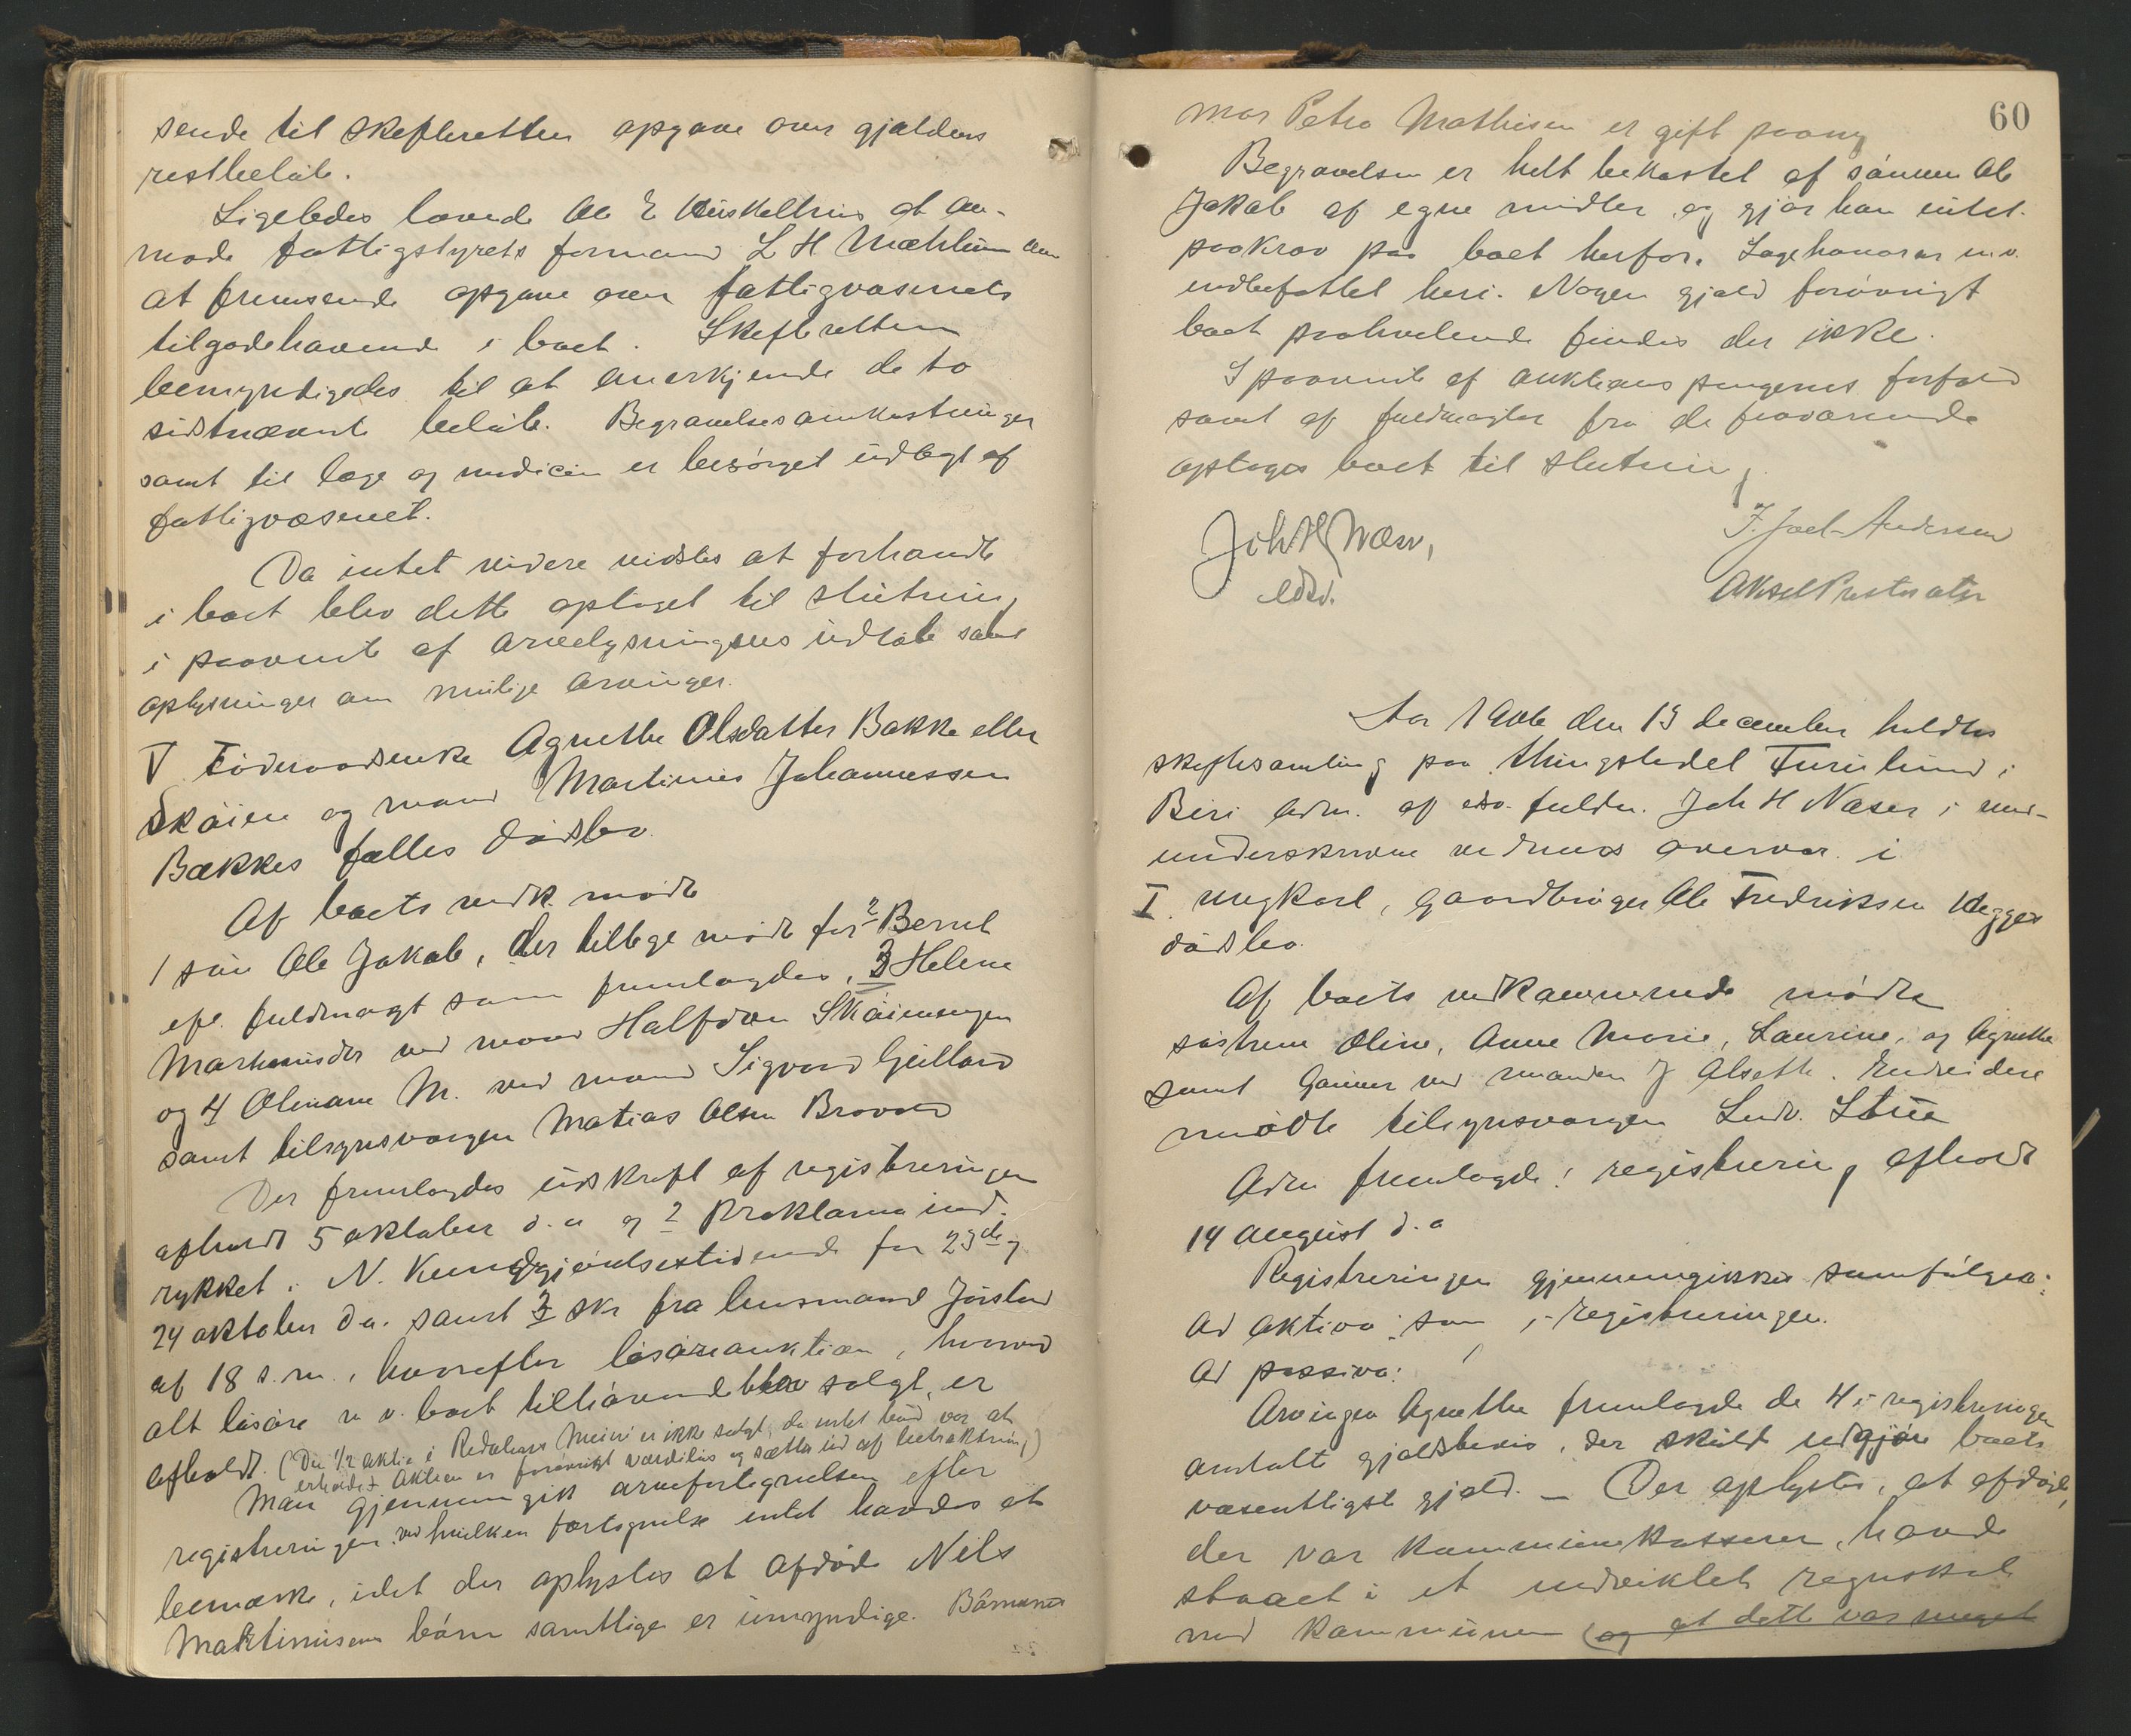 sende til skifteretten opgave over gjældens
restbeløb.
Ligeledes lovede Ole E Kuskeltrus at an-
mode fattigstyrets formand L H Mæhlum om
at fremsende opgave over fattigvæsenets
tilgodehavende i boet. Skifteretten
bemyndigedes til at anerkjende de to
sidstnævnte beløb. Begravelsesomkostninger
samt til læge og medicin er besørget udlagt af
fattigvæsenet.
Da intet videre vidstes at forhandle
i boet blev dette optaget til slutning
i paavente af arvelysningens udløb samt
oplysninger om mulige arvinger.
V Føderaadsenke Agnethe Olsdatter Bakke eller
Skøien og mand Martinus Johannessen
Bækkes fælles dødsbo.
Af boets vedk. mødte
1 søn Ole Jakob, der tillige mødte for 2 Bernt
efl. fuldmagt som fremlagdes, 3 Helene
Marthinusdtr ved mand Halfdan Skøiensengen
og 4 Olinane M. ved mand Sigvard Gjilland
samt tilsynsvargen Matias Olsen Braaten
Der fremlagdes udskrift af registreringen
afholdt 5 oktober d. a og 2 Proklama ind-
rykket i N. Kundgjørelsestidende for 23de og
24 oktober d.a. samt 3 skr fra lensmand Jøistad
af 18 s.m., hvorefter løsøreauktion, hvorved
alt løsøre m v. boet tilhørende blev solgt, er
afholdt. (Den 1/2 aktie i Redalens Meieri er ikke solgt, da intet bud var at
erholde. Aktien er forøvrigt værdiløs og sættes ud af betraktning)
Man gjennemgik arvefortegnelsen efter
registreringen ved hvilken fortegnelse intet havdes at
bemærke, idet der oplystes at afdøde Nils
Martinusens børn samtlige er umyndige. Børnenes
60
mor Petra Mathisen er gift paany
Begravelsen er helt bekostet af sønnen Ole
Jakob af egne midler og gjør han intet
paakrav paa boet herfor. Lægehonorar m.v.
indbefattet heri. Nogen gjæld forøvrigt
boet paahvilende findes der ikke.
I paavente af auktionspengenes forfald
samt af fuldmagter fra de fraværende
optages boet til slutning
Joh H Næser,
edsv.
F. Joel-Andersen
Aksel Prestesæter
Aar 1906 den 19 december holdtes
skiftesamling paa thingstedet Furulund i
Biri adm. af edsv. fuldm. Joh H Næser i und-
underskrevne vidners overvær i
I. ungkarl, gaardbruger Ole Fredriksen Hegges
dødsbo.
Af boets vedkommende mødte
søstrene Oline, Anne Marie, Laurine, og Agnethe
samt Gunner ved manden J Alseth. Endvidere
mødte tilsynsvargen Ludv. Stue
Adm fremlagde 1 registrering afholdt
14 august d. a
Registreringen gjennemgikkes saamfølger:
Ad aktiva: som i registreringen.
Ad passiva:
Arvingen Agnethe fremlagde de 4 i registreringen
omtalte gjældsbevis, der skuld udgjøre boets
væsentligste gjæld. — Der oplystes, at afdøde,
der var kommunekasserer, havde
staaet i et indviklet regnskab
med kommunen (og at dette var meget